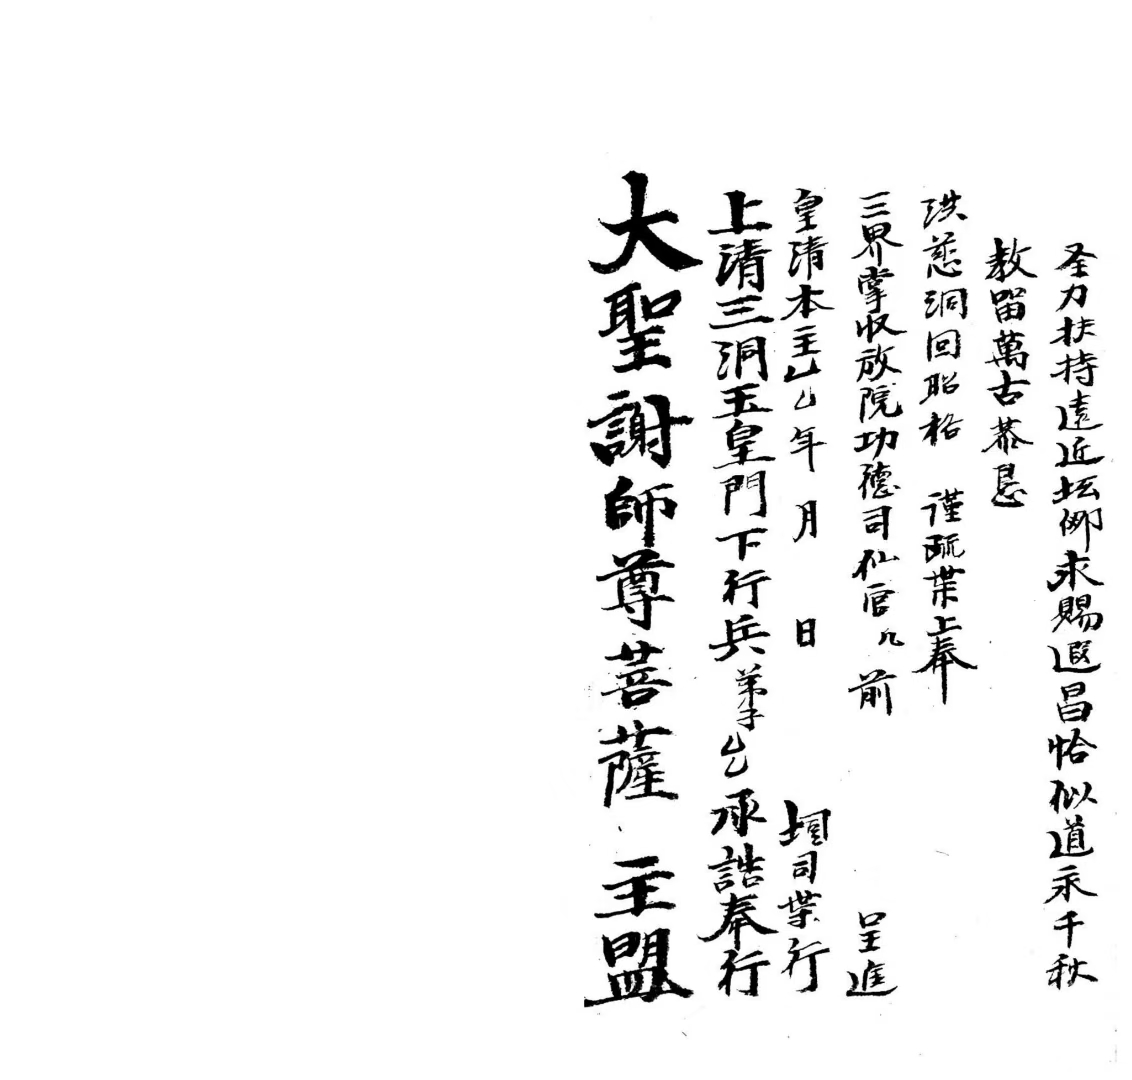 圣力扶持遠近坛𨙻求賜遐昌恰似道永千秋
教留萬古恭恳
洪慈洞回昭格 谨疏業上奉
三界掌收放院功德司仙官几前 呈進
皇清本主厶厶年 月 日 壇司業行
上清三洞玉皇門下行兵弟子厶承誥奉行
大聖謝師尊菩薩 主盟